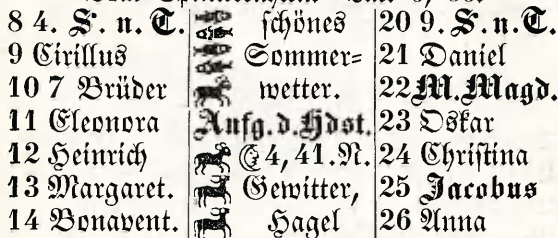 8 4. S. n. T. schönes 20 9. S. n. T.
9 Cirillus Sommer= 21 Daniel
10 7 Brüder wetter. 22 M. Magd.
11 Eleonora Aufg. d. Hdst. 23 Oskar
12 Heinrich 4, 41. N. 24 Christina
13 Margaret. Gewitter, 25 Jacobus
14 Bonavent. Hagel 26 Anna